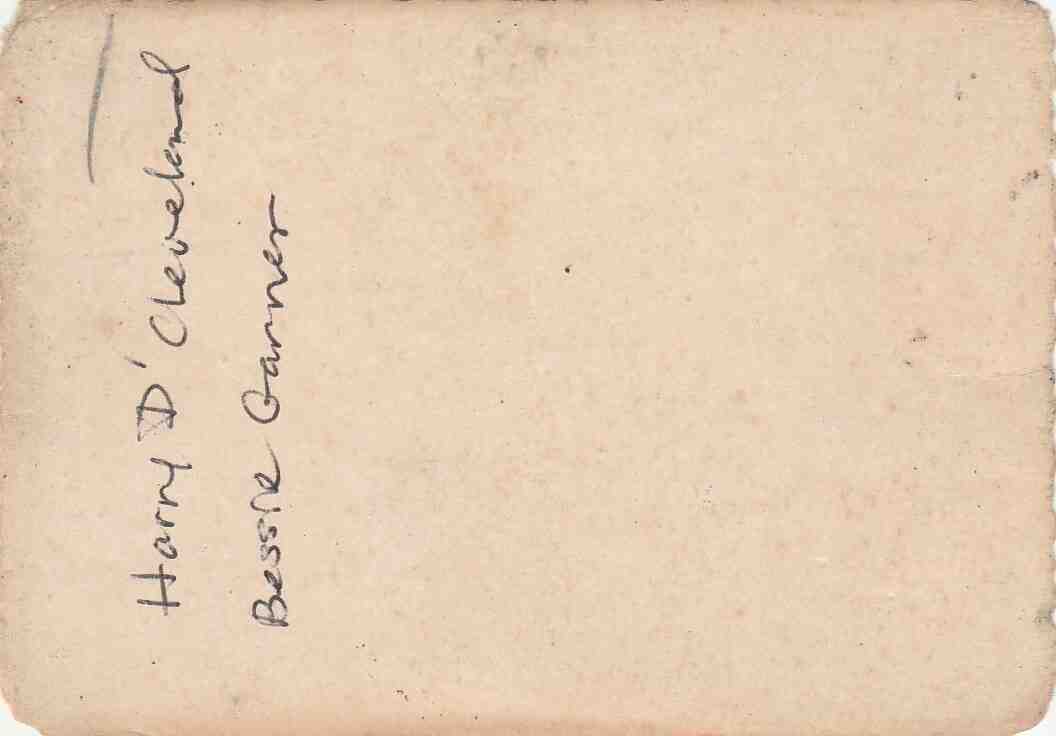 Harry D' Cleveland
Bessie Garner